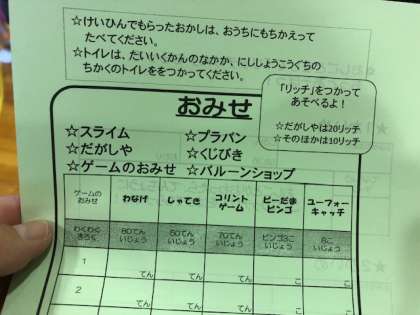 ☆けいひんでもらったおかしは、おうちにもちかえって
たべてください。
☆トイレは、たいいくかんのなかか、にししょうこうぐちの
ちかくのトイレををつかってください。
おみせ
「リッチ」をつかって
あそべるよ！
☆だがしやは20リッチ
☆そのほかは10リッチ
☆スライム ☆プラバン
☆だがしや ☆くじびき
☆ゲームのおみせ ☆バルーンショップ
ゲームの
おみせ
わなげ
しゃてき
コリント
ゲーム
ビーだま
ビンゴ
ユーフォー
キャッチ
わくわく
きろく
80てん
いじょう
70てん
いじょう
ビンゴ3こ
いじょう
いじょう
1 てん てん てん こ こ
2 てん てん てん こ こ